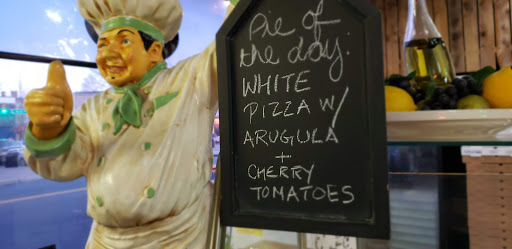 Pie of
the day:
WHITE
PIZZA W/
ARUGULA
+
CHERRY
TOMATOES